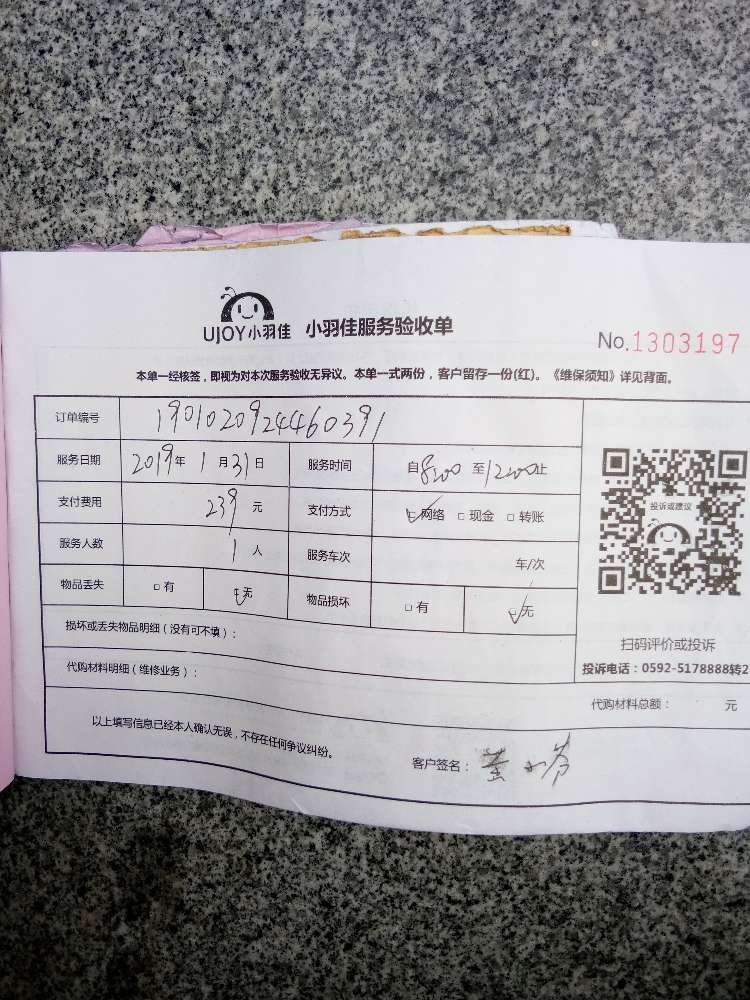 UJOY小羽佳 小羽佳服务验收单
No.1303197
本单一经核签，即视为对本次服务验收无异议。本单一式两份，客户留存一份(红)。《维保须知》详见背面。
订单编号 1901020924460391
服务日期 2019年 1月31日 服务时间 自8:00至12:00止
支付费用 239元 支付方式 网络 现金 转账
服务人数 1人 服务车次 车/次
物品丢失 有 无 物品损坏 有 无
投诉或建议
扫码评价或投诉
投诉电话：0592-5178888转2
损坏或丢失物品明细（没有可不填）：
代购材料明细（维修业务）：
代购材料总额： 元
以上填写信息已经本人确认无误，不存在任何争议纠纷。
客户签名：